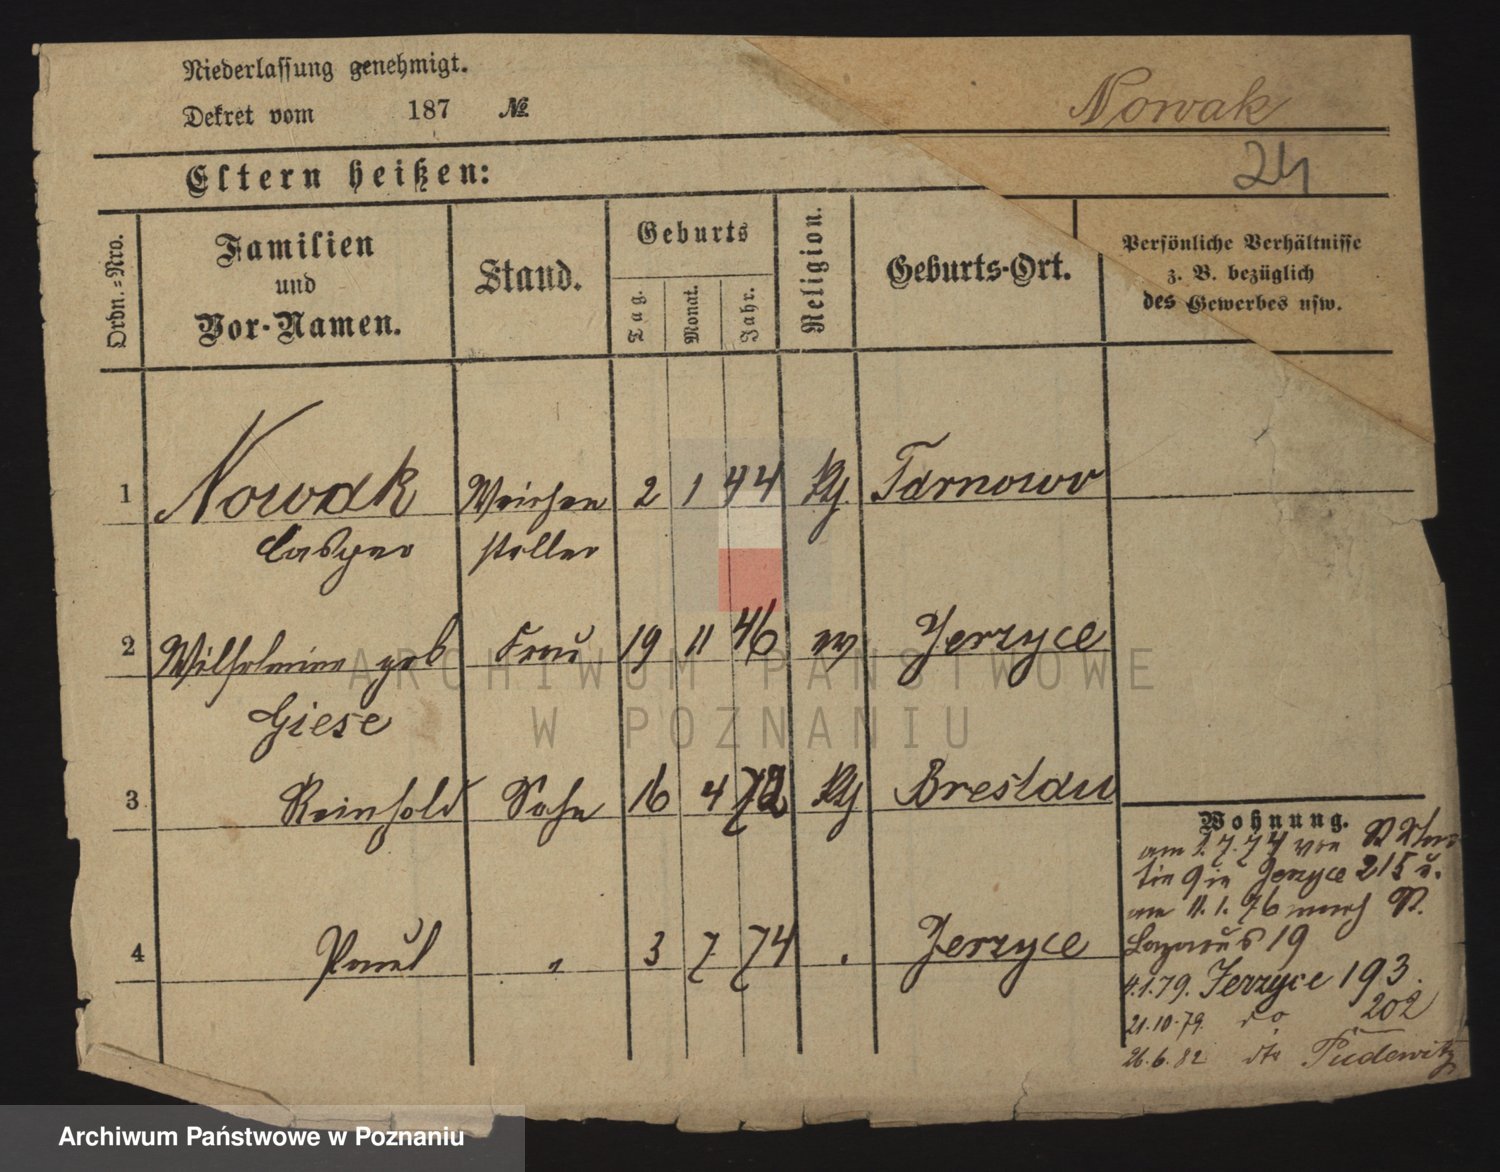 Niederlassung genehmigt.
Dekret vom 187 №
Nowak
24
Eltern heißen:
Ordn.-Nro.
Familien
und
Vor-Namen.
Stand.
Geburts
Tag.
Monat.
Jahr.
Religion.
Geburts-Ort.
Persönliche Verhältnisse
z. B. bezüglich
des Gewerbes usw.
1 Nowak Weichen 2 1 44 kth Tarnowo
Casper steller
2 Wilhelmine geb Frau 19 11 46 ev Jerzyce
Giese
3 Reinhold Sohn 16 4 72 kth Breslau
4 Paul " 3 7 74 . Jerzyce
Wohnung.
am 1.7.74 von St
in Jerzyce 215 u.
am 11.1.76 nach St.
Lazarus 19
4.1.79. Jerzyce 193.
21.10.79. do 202
26.6.82 dto Pudewitz
ARCHIWUM PAŃSTWOWE
W POZNANIU
Archiwum Państwowe w Poznaniu